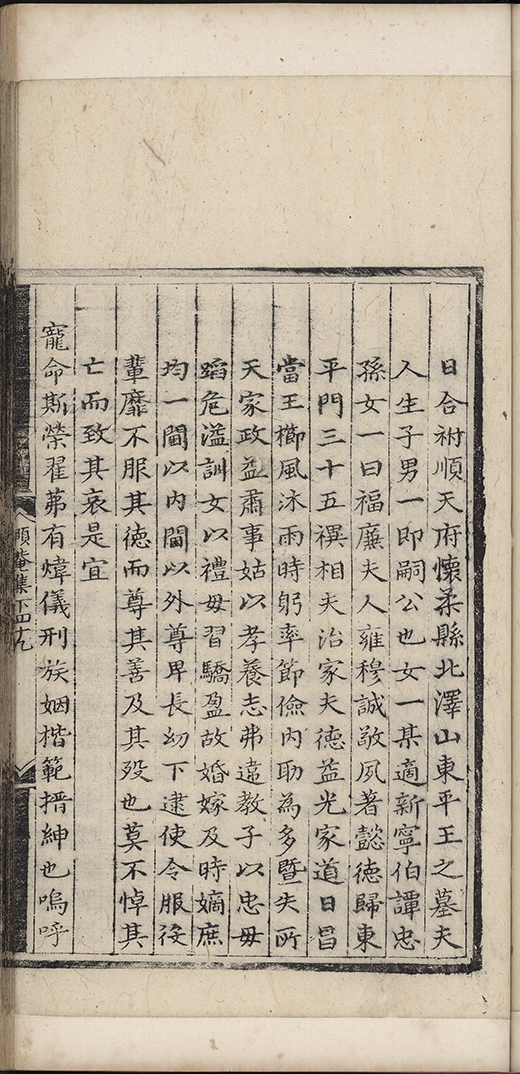 日合祔順天府懷柔縣北澤山東平王之墓夫
人生子男一即嗣公也女一某適新寧伯譚忠
孫女一曰福廉夫人雍穆誠敬夙著懿德歸東
平門三十五禩相夫治家夫德益光家道日昌
當王櫛風沐雨時躬率節儉內助為多暨失所
天家政益肅事姑以孝養志弗違教子以忠毋
蹈危溢訓女以禮毋習驕盈故婚嫁及時嫡庶
均一閫以內閫以外尊卑長幼下逮使令服役
輩靡不服其德而尊其善及其歿也莫不悼其
亡而致其哀是宜
寵命斯榮翟茀有煒儀刑族姻楷範搢紳也嗚呼
頤庵集下四九